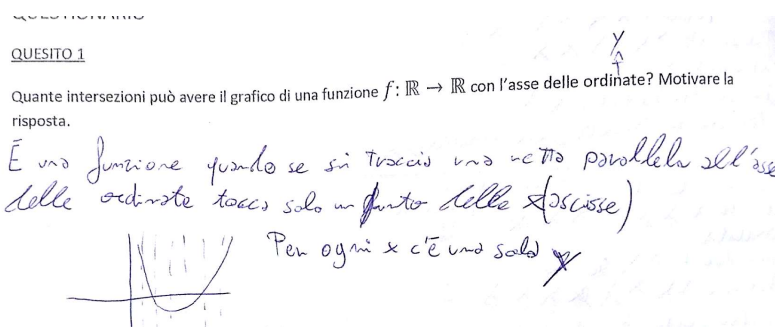 QUESTIONARIO
QUESITO 1
y
Quante intersezioni può avere il grafico di una funzione f: ℝ → ℝ con l'asse delle ordinate? Motivare la
risposta.
È una funzione quando se si traccia una retta parallela all'asse
delle ordinate tocca solo un punto delle x (ascisse)
Per ogni x c'è una sola y